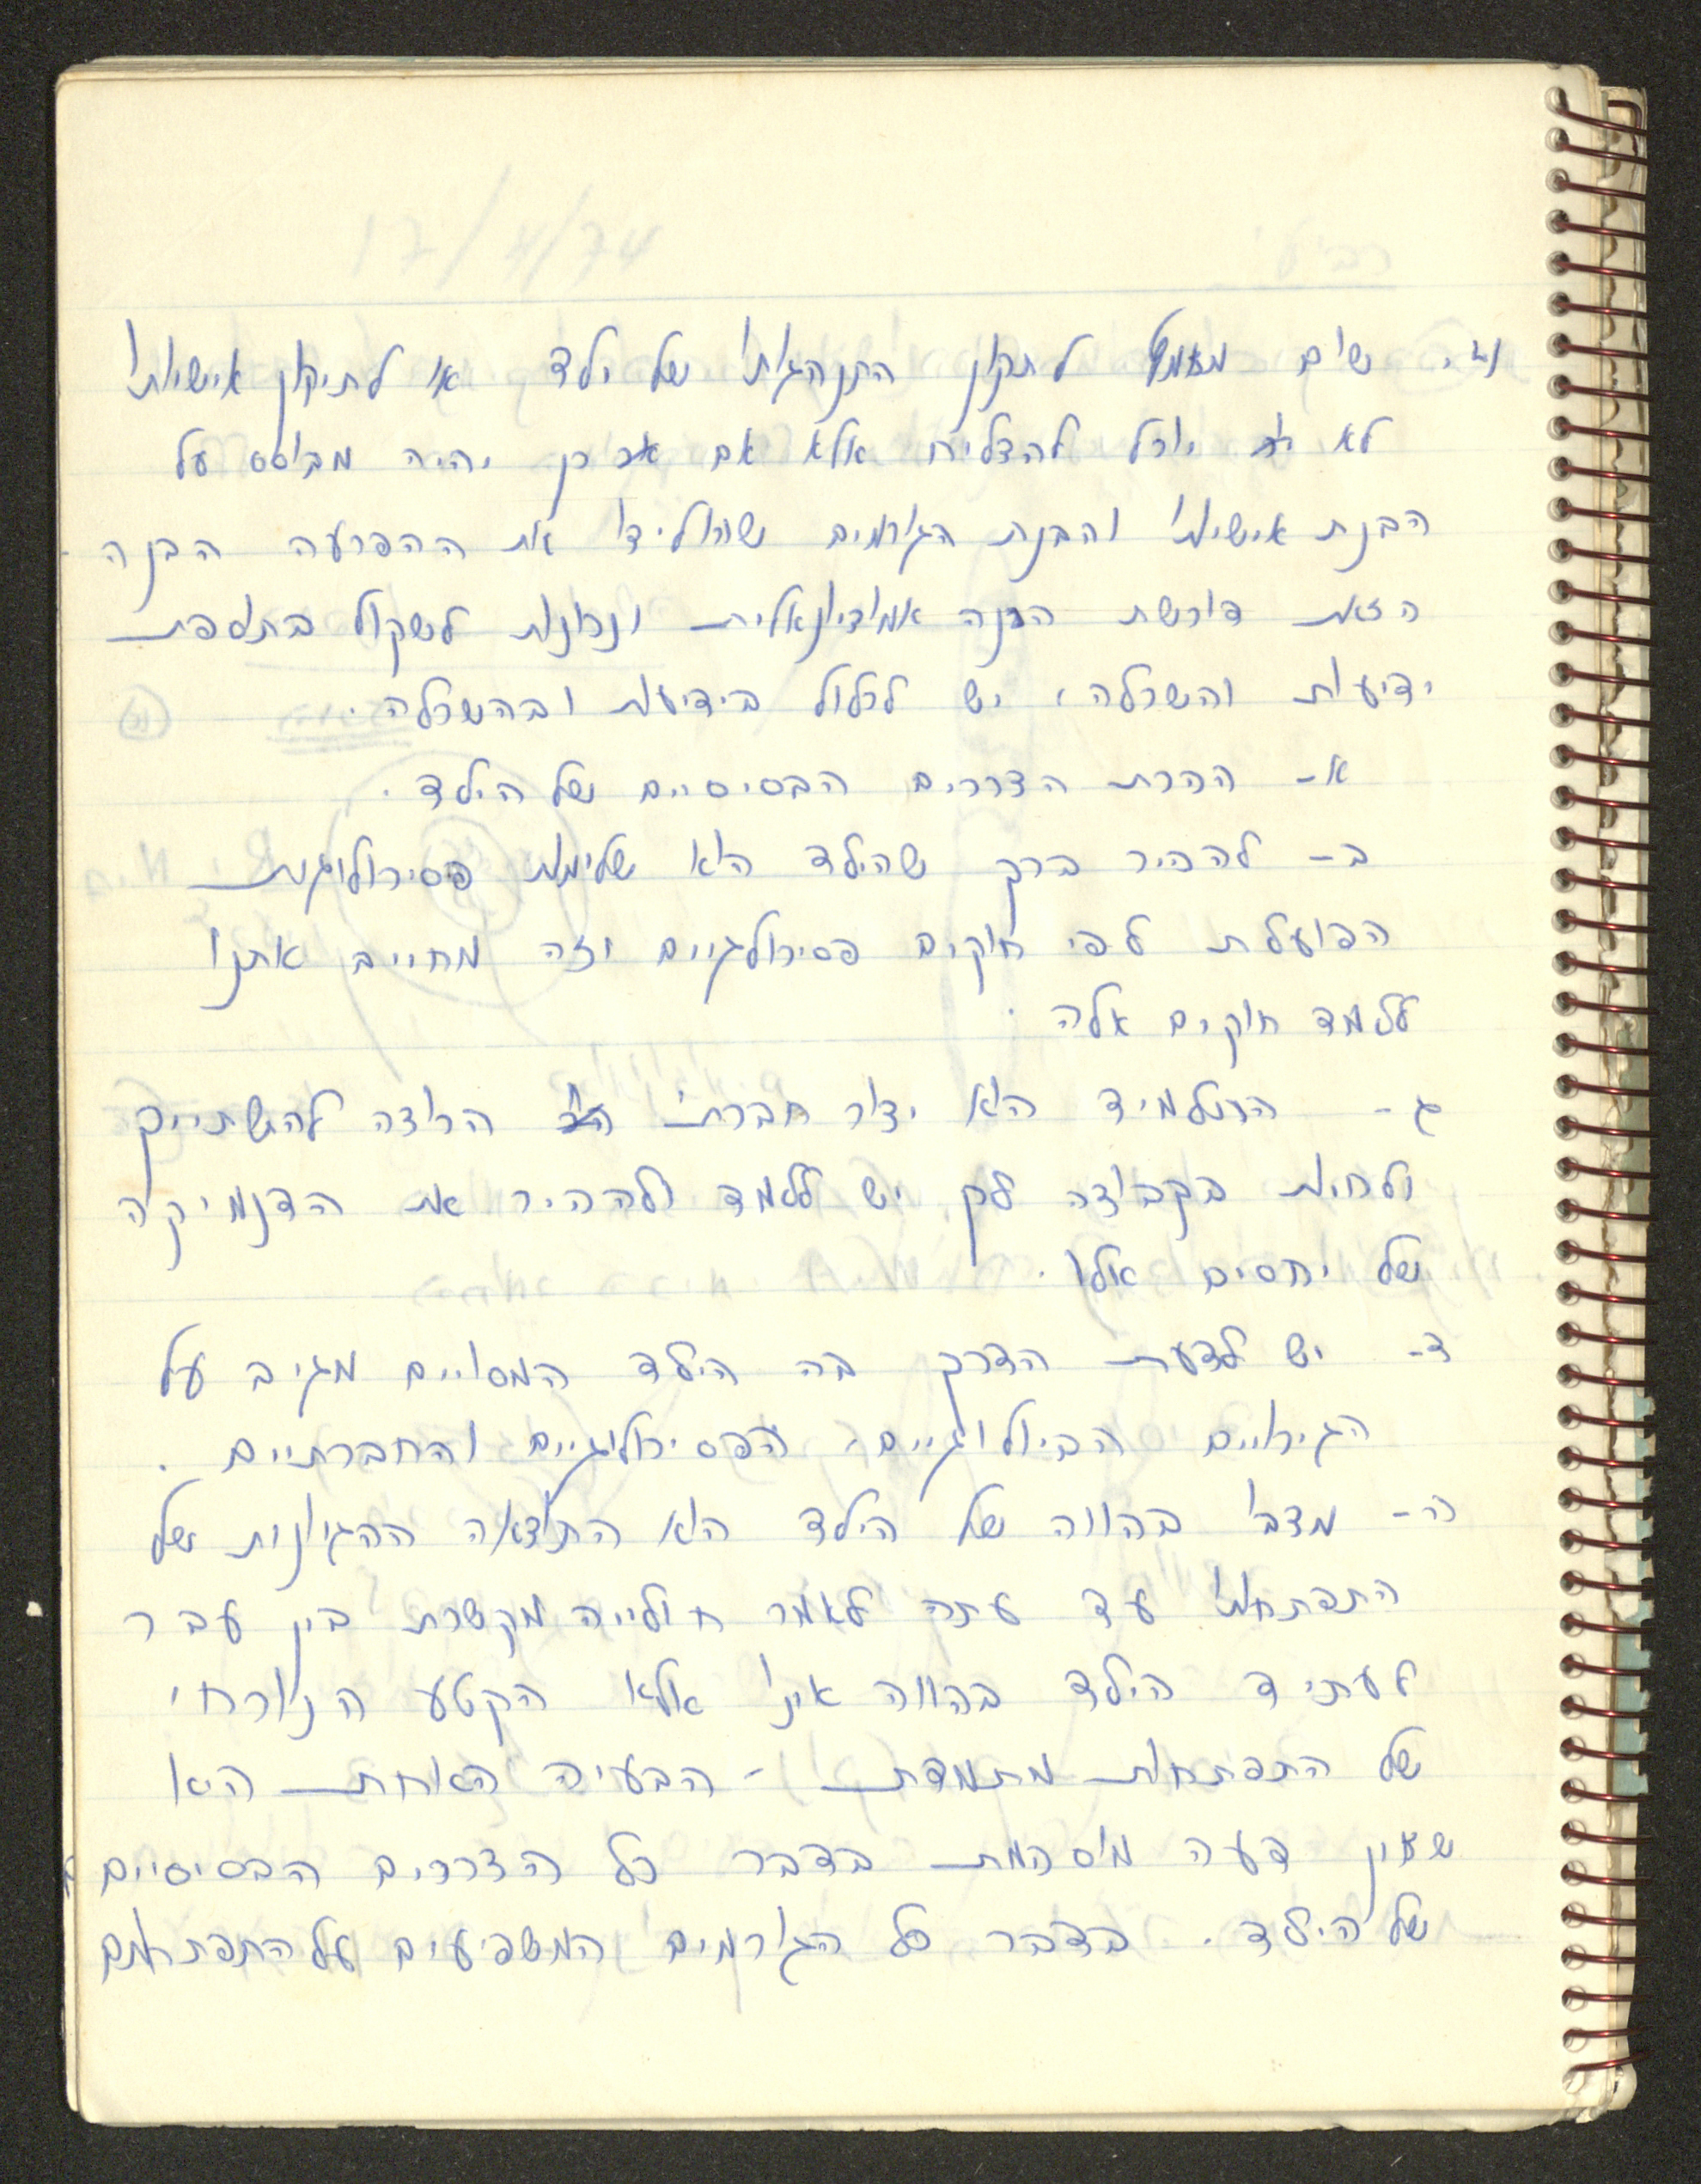 שום מאמץ לתקון התנהגותו של ילד או לתיקון אישיותו
לא יוכל להצליח אלא אם כן יהיה מבוסס על
הבנת אישיותו והבנת הגורמים שהולידו את ההפרעה הבנה
הזאת דורשת הבנה אמוציונאלית ונכונות לשקול בתוספת
ידיעות והשכלה, יש לכלול בידיעות ובהשכלה.
א- הכרת הצרכים הבסיסיים של הילד.
ב- להכיר בכך שהילד הוא שלימות פסיכולוגית
הפועלת לפי חוקים פסיכולגיים וזה מחייב אתנו
ללמד חוקים אלה.
ג- התלמיד הוא יצור חברתי הרוצה להשתייך
ולחיות בקבוצה לכן יש ללמד ולהכיר את הדנמיקה
של יחסים אלו.
ד- יש לדעת הדרך בה הילד המסויים מגיב על
הגירויים הביולוגיים, הפסיכולוגיים והחברתיים.
ה- מצבו בהווה של הילד הוא התוצאה ההגיונות של
התפתחותו עד עתה לאמר חולייה מקשרת בין עבר
לעתיד הילד בהווה אינו אלא הקטע הנוכחי
של התפתחות מתמדת - הבעיה האחת היא
שאין דעה מוסכמת בדבר כל הצרכים הבסיסיים
של הילד. בדבר כל הגורמים המשפיעים על התפתחותם
17/4/74